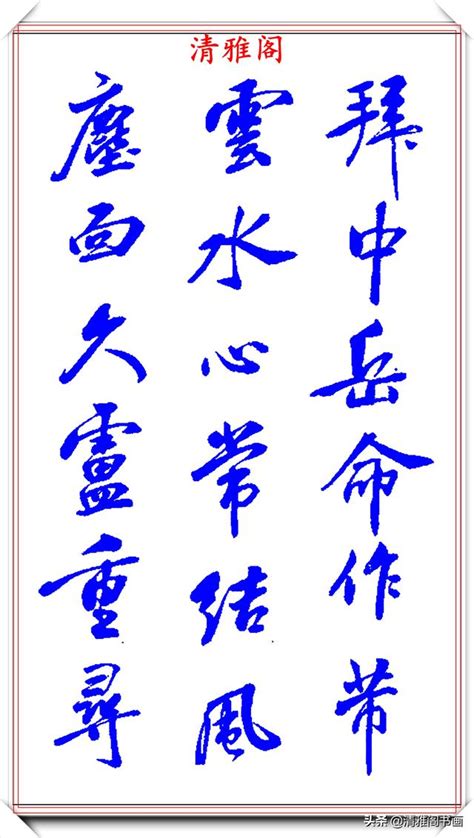 清雅阁
拜中岳命作芾
雲水心常结風
塵面久盧重尋
头条 @清雅阁书画